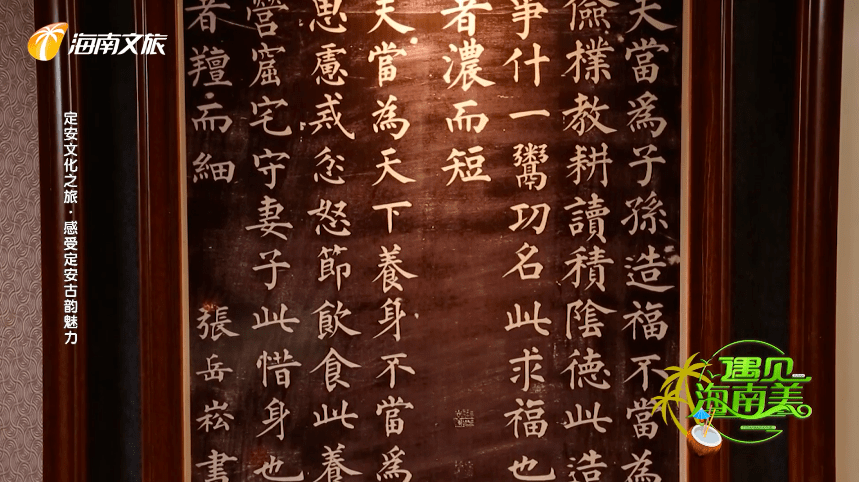 海南文旅
定安文化之旅·感受定安古韵魅力
夫當為子孫造福不當為
儉樸教耕讀積陰德此造
事什一鬻功名此求福也
者濃而短
夫當為天下養身不當為
思慮戒忿怒節飲食此養
營窟宅守妻子此惜身也
者羶而細
張岳崧書
遇见
海南美